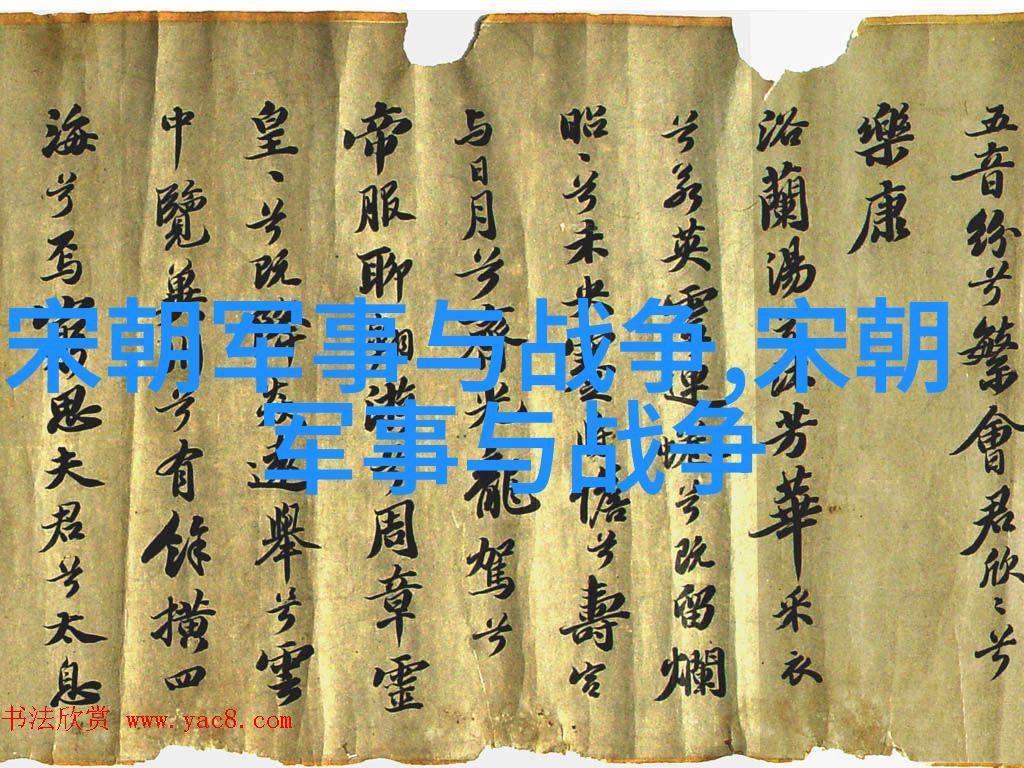 五音紛兮繁會君欣〻兮
樂康
浴蘭湯兮沐芳華采衣
兮若英靈連惓兮既留爛
昭〻兮未央蹇將憺兮壽宮
与日月兮齊光龍駕兮
帝服聊翱遊兮周章靈
皇〻兮既降猋遠舉兮雲
中覽冀州兮有餘橫四
海兮焉窮思夫君兮太息
宋朝军事与战争,宋朝
军事与战争
书法欣赏 www.yac8.com